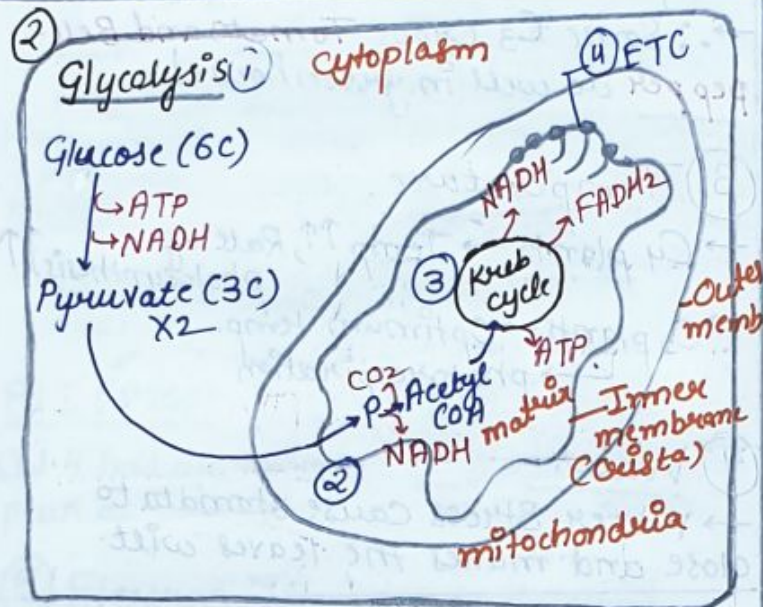 ②
Glycolysis ①
Cytoplasm
④ ETC
Glucose (6C)
ATP
NADH
Pyruvate (3C)
X2
NADH
FADH2
③
Kreb
cycle
ATP
CO2
P → Acetyl
COA
NADH
②
matrix
Outer
memb
Inner
membrane
(Crista)
mitochondria